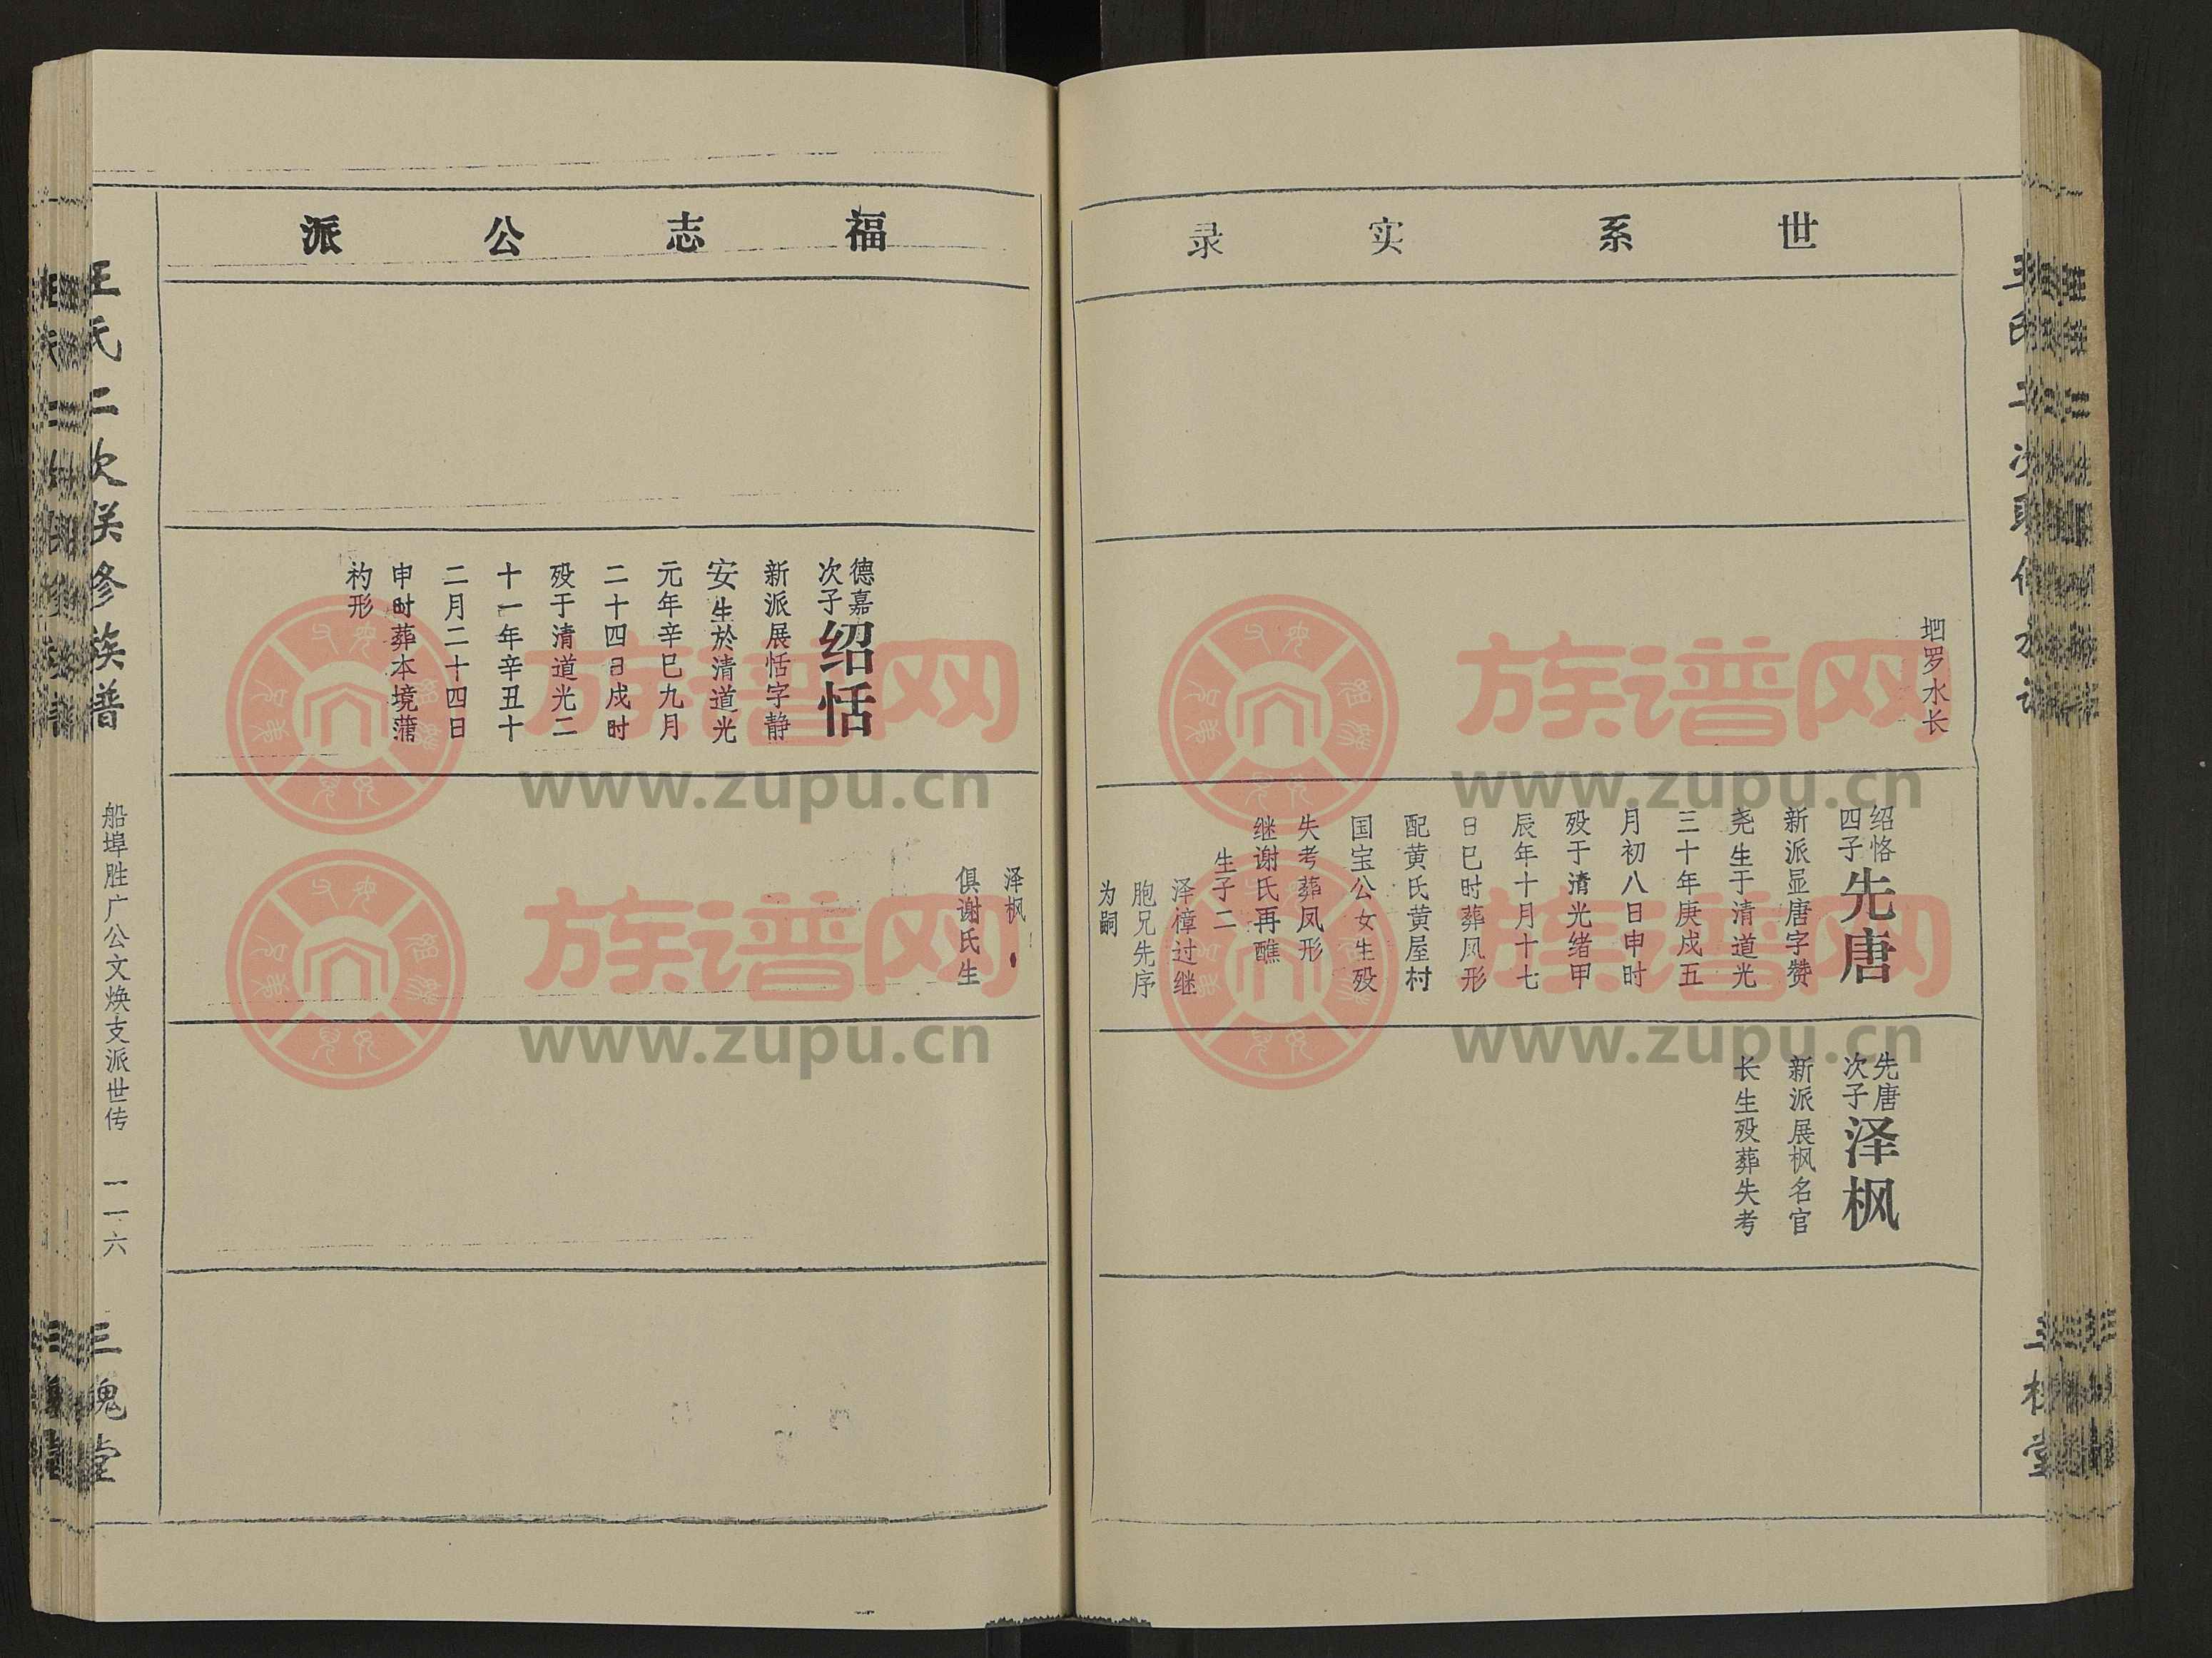 世系实录
垇罗水长
绍恪
四子
先唐
新派显唐字赞
尧生于清道光
三十年庚戌五
月初八日申时
殁于清光绪甲
辰年十月十七
日巳时葬凤形
配黄氏黄屋村
国宝公女生殁
失考葬凤形
继谢氏再醮
生子二
泽偉过继
胞兄先序
为嗣
先唐
次子
泽枫
新派展枫名官
长生殁葬失考
福志公派
德嘉
次子
绍恬
新派展恬字静
安生於清道光
元年辛巳九月
二十四日戌时
殁于清道光二
十一年辛丑十
二月二十四日
申时葬本境蒲
礿形
泽枫
俱谢氏生
王氏二次联修族普
船埠胜广公文焕支派世传
一一六
三槐堂
族谱网
www.zupu.cn
族谱网
www.zupu.cn
族谱网
www.zupu.cn
族谱网
www.zupu.cn